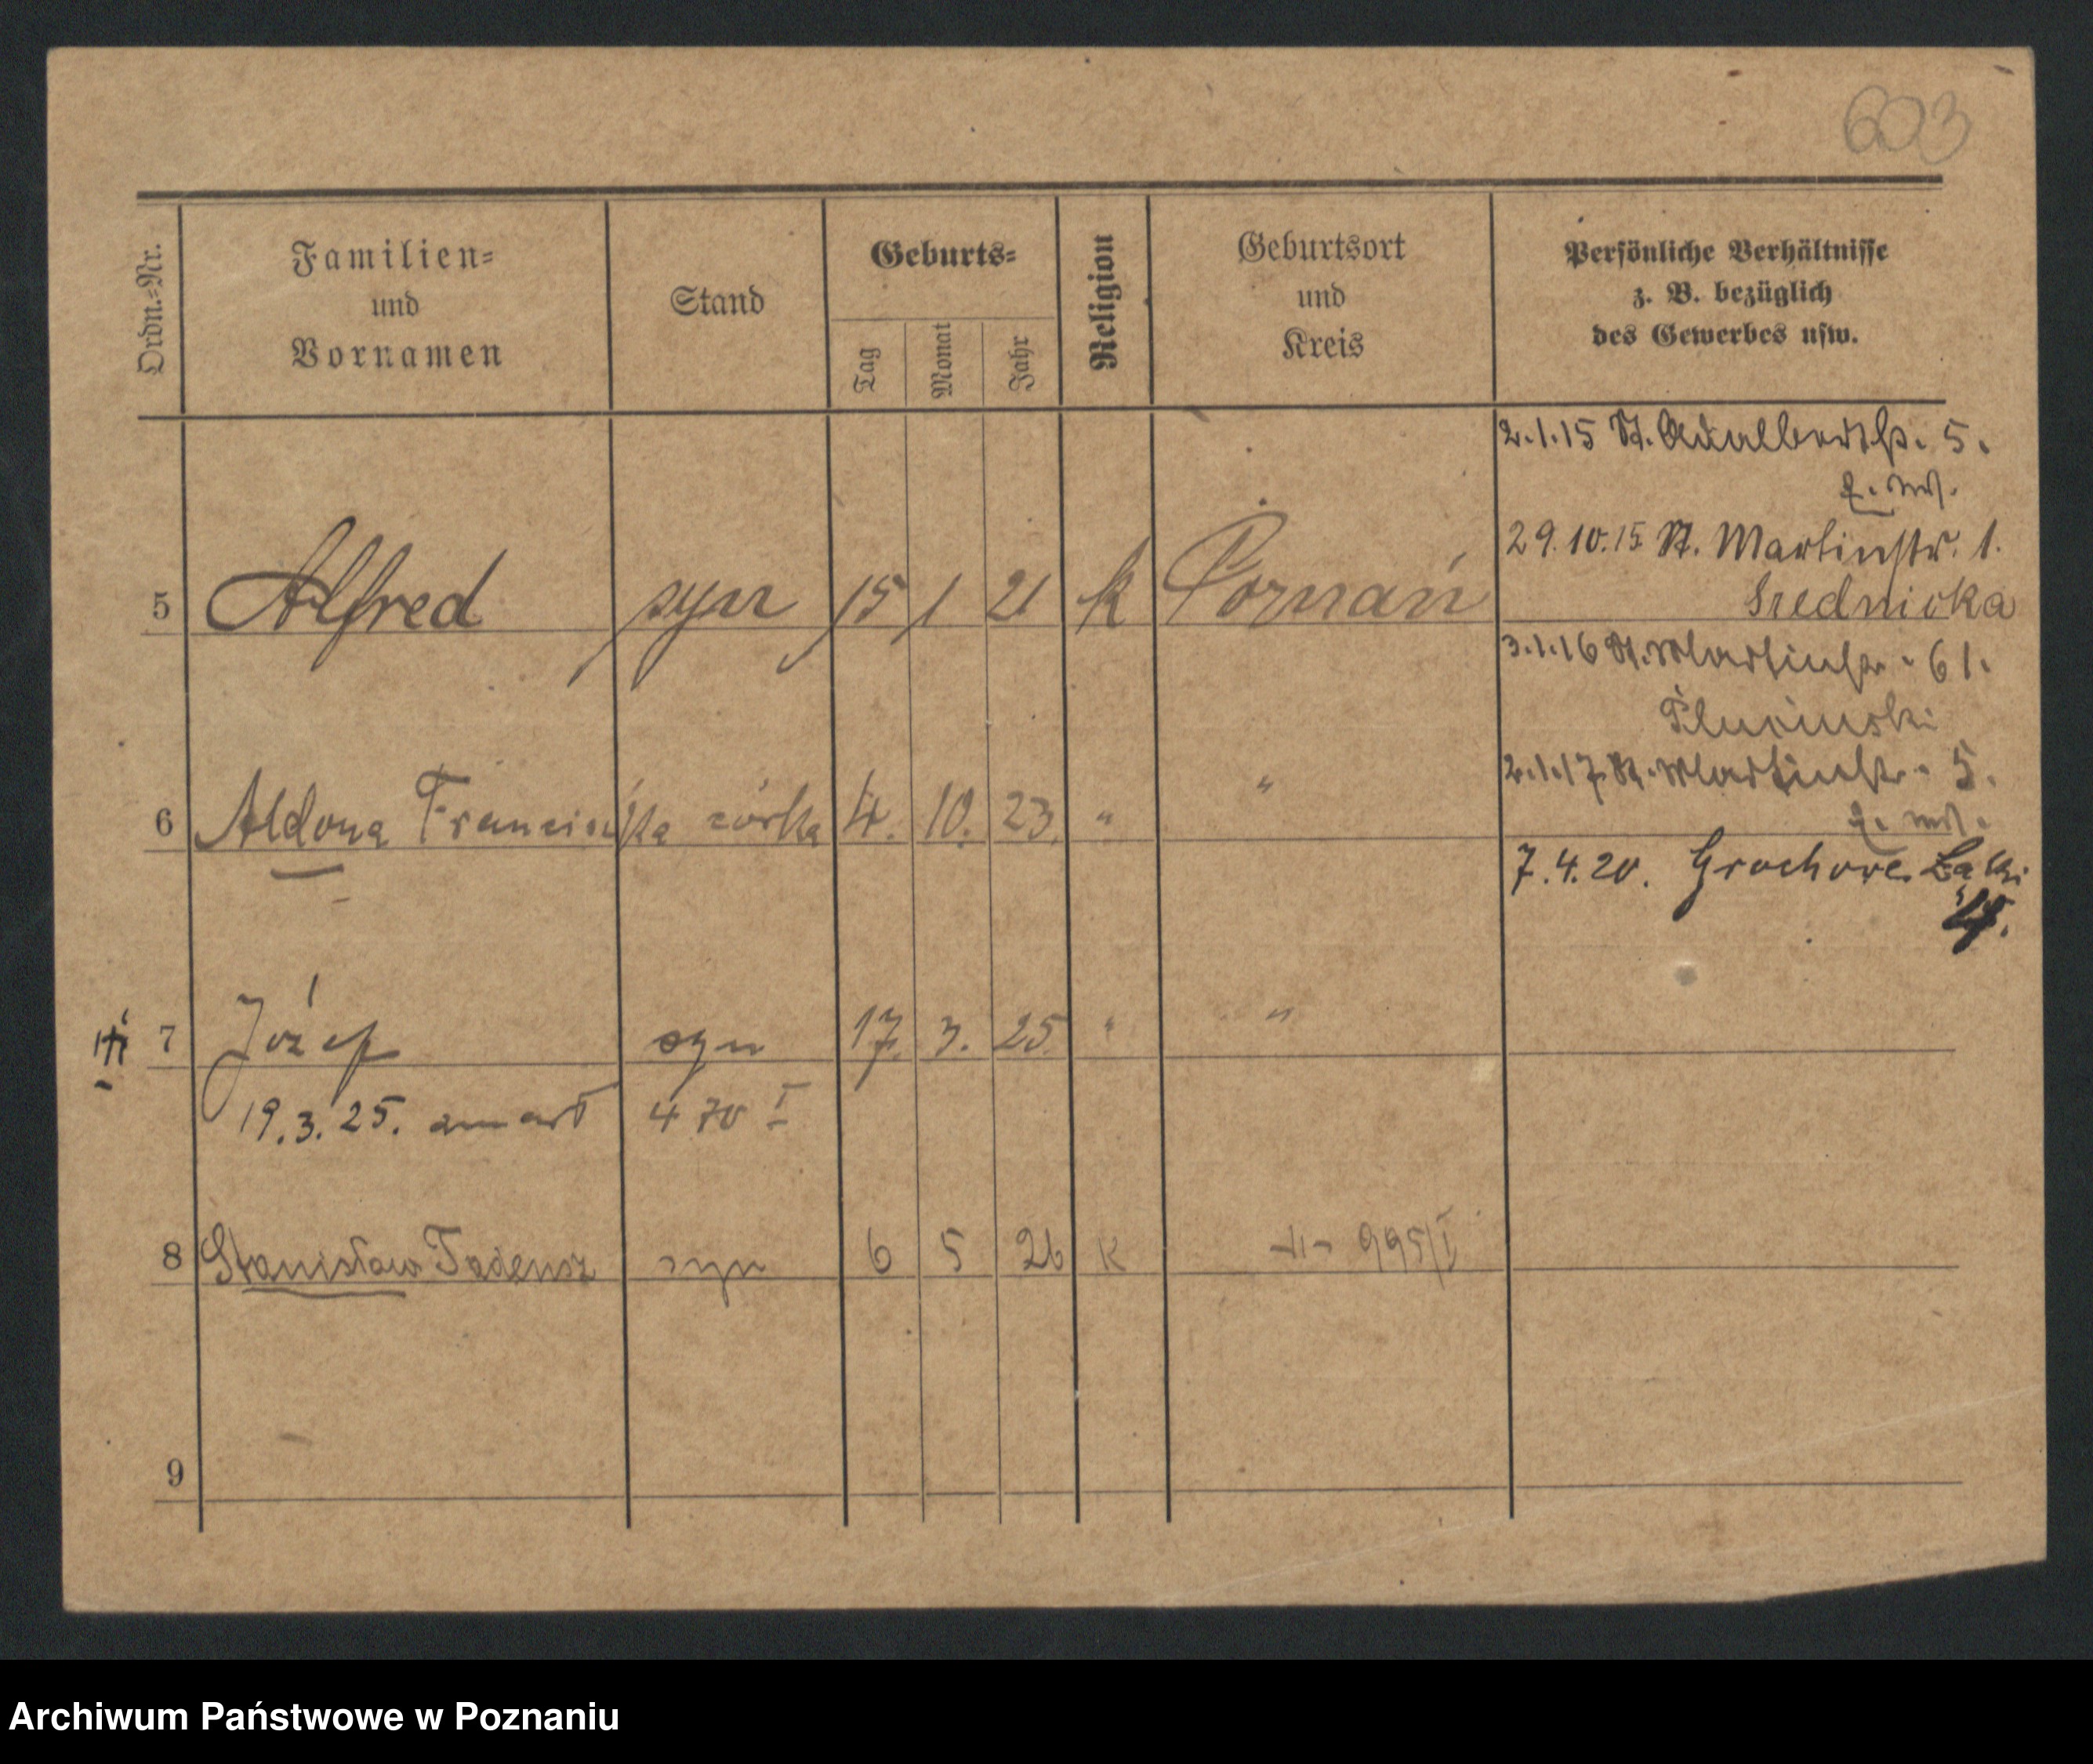 603
Ordn.-Nr.
Familien-
und
Vornamen
Stand
Geburts-
Tag
Monat
Jahr
Religion
Geburtsort
und
Kreis
Persönliche Verhältnisse
z. B. bezüglich
des Gewerbes usw.
2.1.15 St. Adalbertstr. 5.
29.10.15 St. Martinstr. 1.
Srednicka
5 Alfred syn 15 1 21 k Poznań
3.1.16 St. Martinstr. 61.
2.1.17 St. Martinstr. 5.
6 Aldona Franciszka córka 4. 10. 23. " "
7.4.20. Grochowe Łąki
4.
7 Józef syn 17. 3. 25. " "
19.3.25. zmarł 470 I
8 Stanisław Tadeusz syn 6 5 26 K -"- 995/I
9
Archiwum Państwowe w Poznaniu